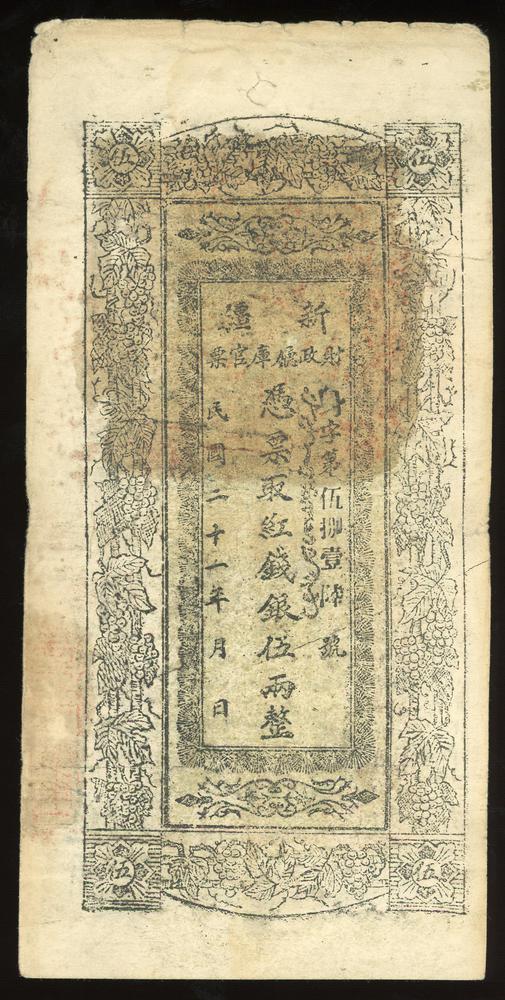 伍
伍
新疆
財政廳庫官票
字第伍捌壹肆號
憑票取紅錢銀伍兩整
民國二十一年月日
伍
伍